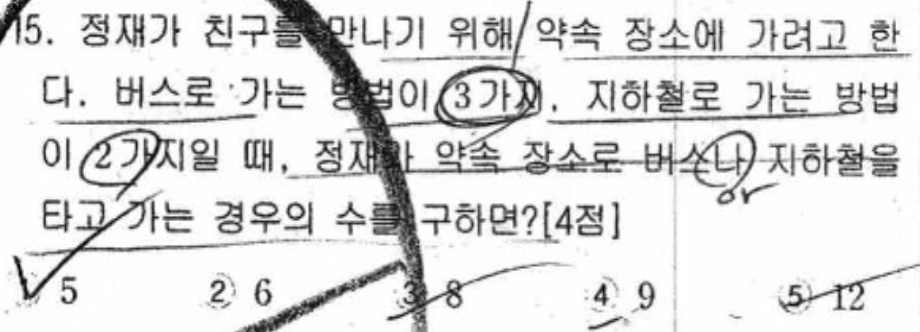 15. 정재가 친구를 만나기 위해 약속 장소에 가려고 한
다. 버스로 가는 방법이 3가지, 지하철로 가는 방법
이 2가지일 때, 정재가 약속 장소로 버스나 지하철을
or
타고 가는 경우의 수를 구하면?[4점]
5 ② 6 ③ 8 ④ 9 ⑤ 12